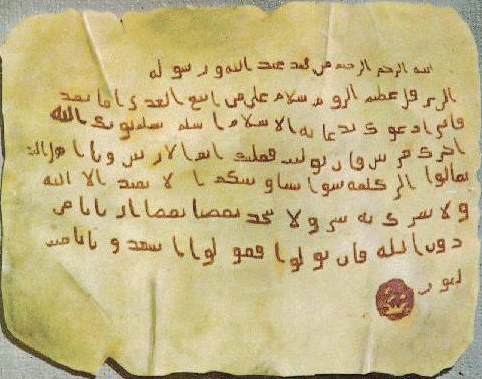 بسم الله الرحمن الرحيم من محمد عبد الله و رسوله
الى هرقل عظيم الروم سلام على من اتبع الهدى اما بعد
فانى ادعوك بدعاية الاسلام اسلم تسلم يوتك الله
اجرك مرتين فان توليت فعليك اثم الاريسين ويا اهل
تعالوا الى كلمة سوا بيننا وبينكم ا لا نعبد الا الله
ولا نشرك به شي ولا يتخذ بعضنا بعضا اربابا من
دون الله فان تولوا فقولوا اشهدو بانا مس
لمون